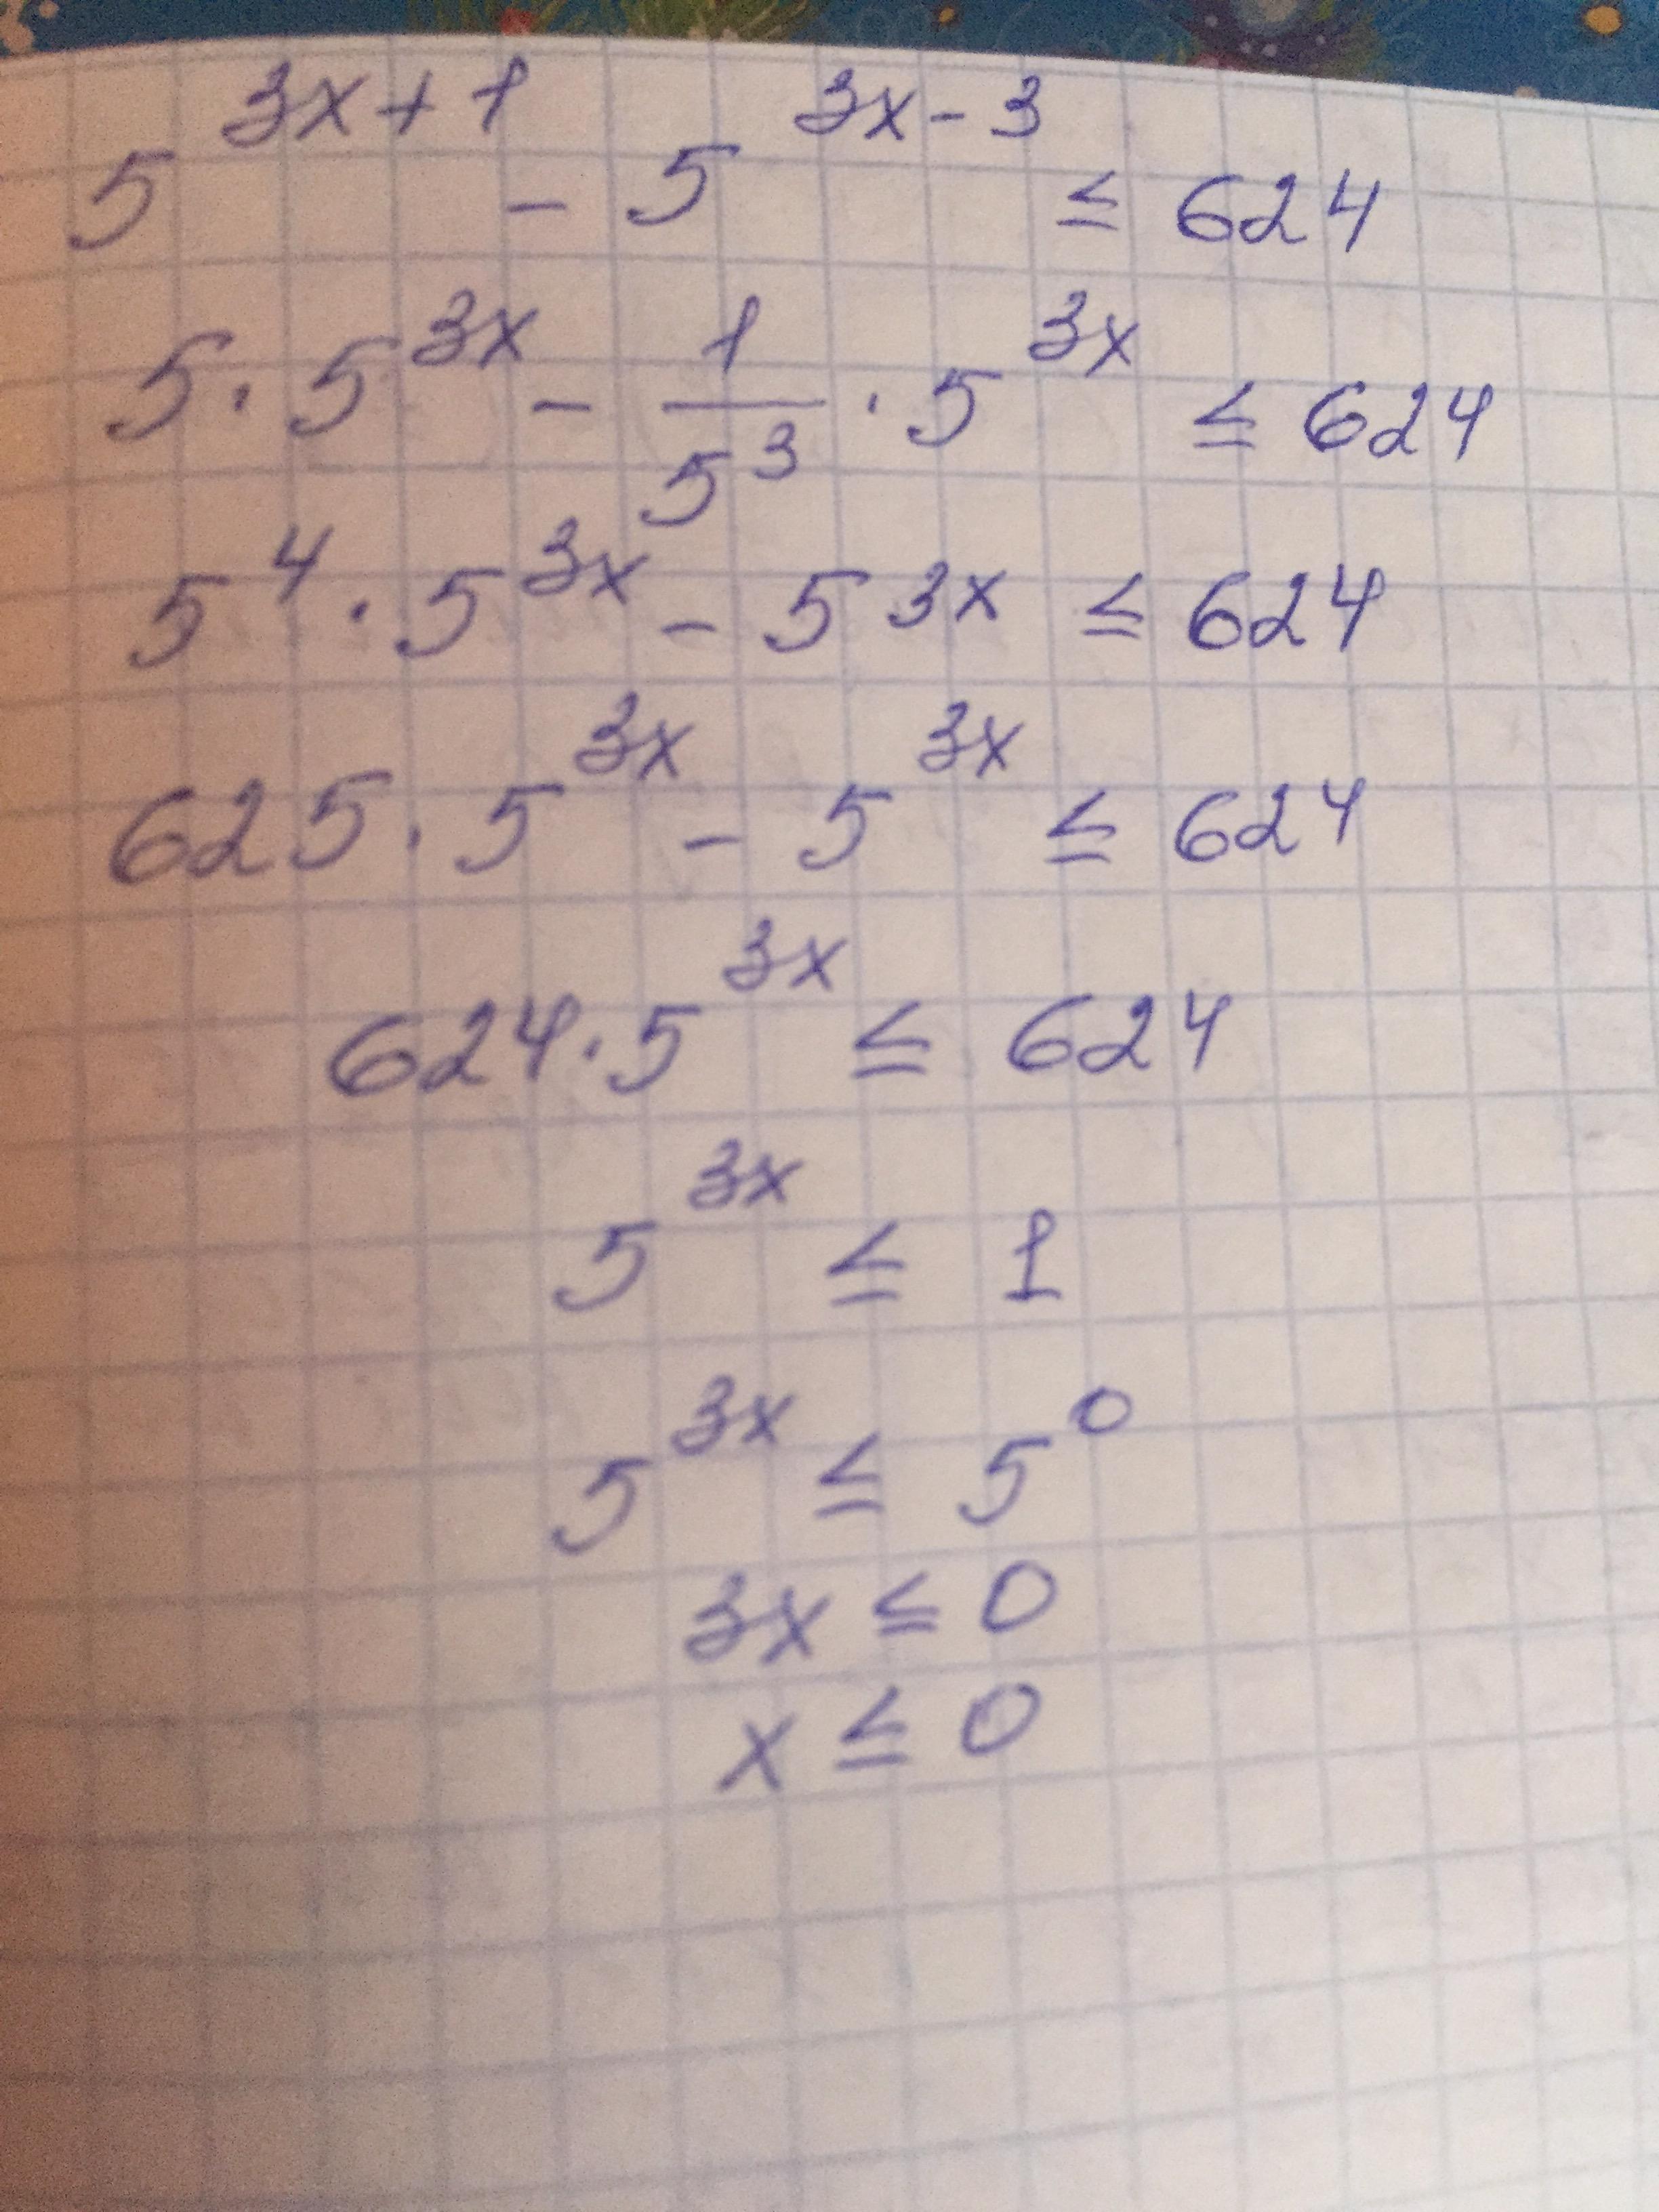 5^{3x+1} - 5^{3x-3} ≤ 624
5 · 5^{3x} - \frac{1}{5^3} · 5^{3x} ≤ 624
5^4 · 5^{3x} - 5^{3x} ≤ 624
625 · 5^{3x} - 5^{3x} ≤ 624
624 · 5^{3x} ≤ 624
5^{3x} ≤ 1
5^{3x} ≤ 5^0
3x ≤ 0
x ≤ 0